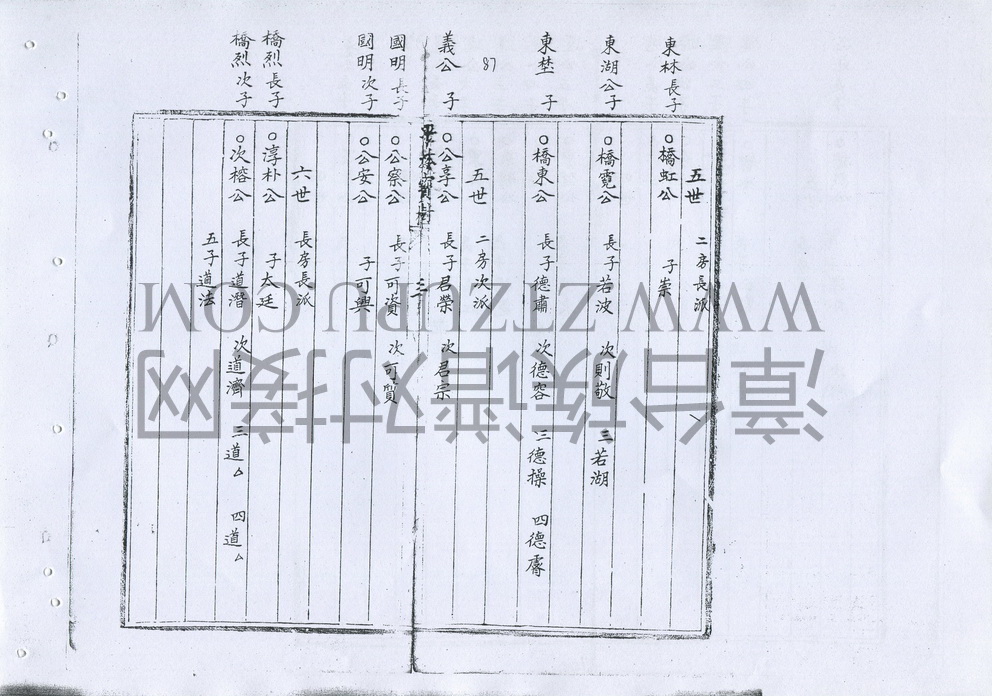 五世 二房長派
東林長子 橋虹公 子崇
東湖公子 橋霓公 長子若波 次則敬 三若湖
東埜 子 橋東公 長子德肅 次德容 三德操 四德𢊍
87
五世 二房次派
義公 子 公享公 長子君榮 次君宗
寶樹 三
國明長子 公察公 長子可資 次可貿
國明次子 公安公 子可興
六世 長房長派
橋烈長子 淳朴公 子太廷
橋烈次子 次榕公 長子道潛 次道濟 三道△ 四道△
五子道法
WWW.ZTZUPU.COM
漳台族谱对接网